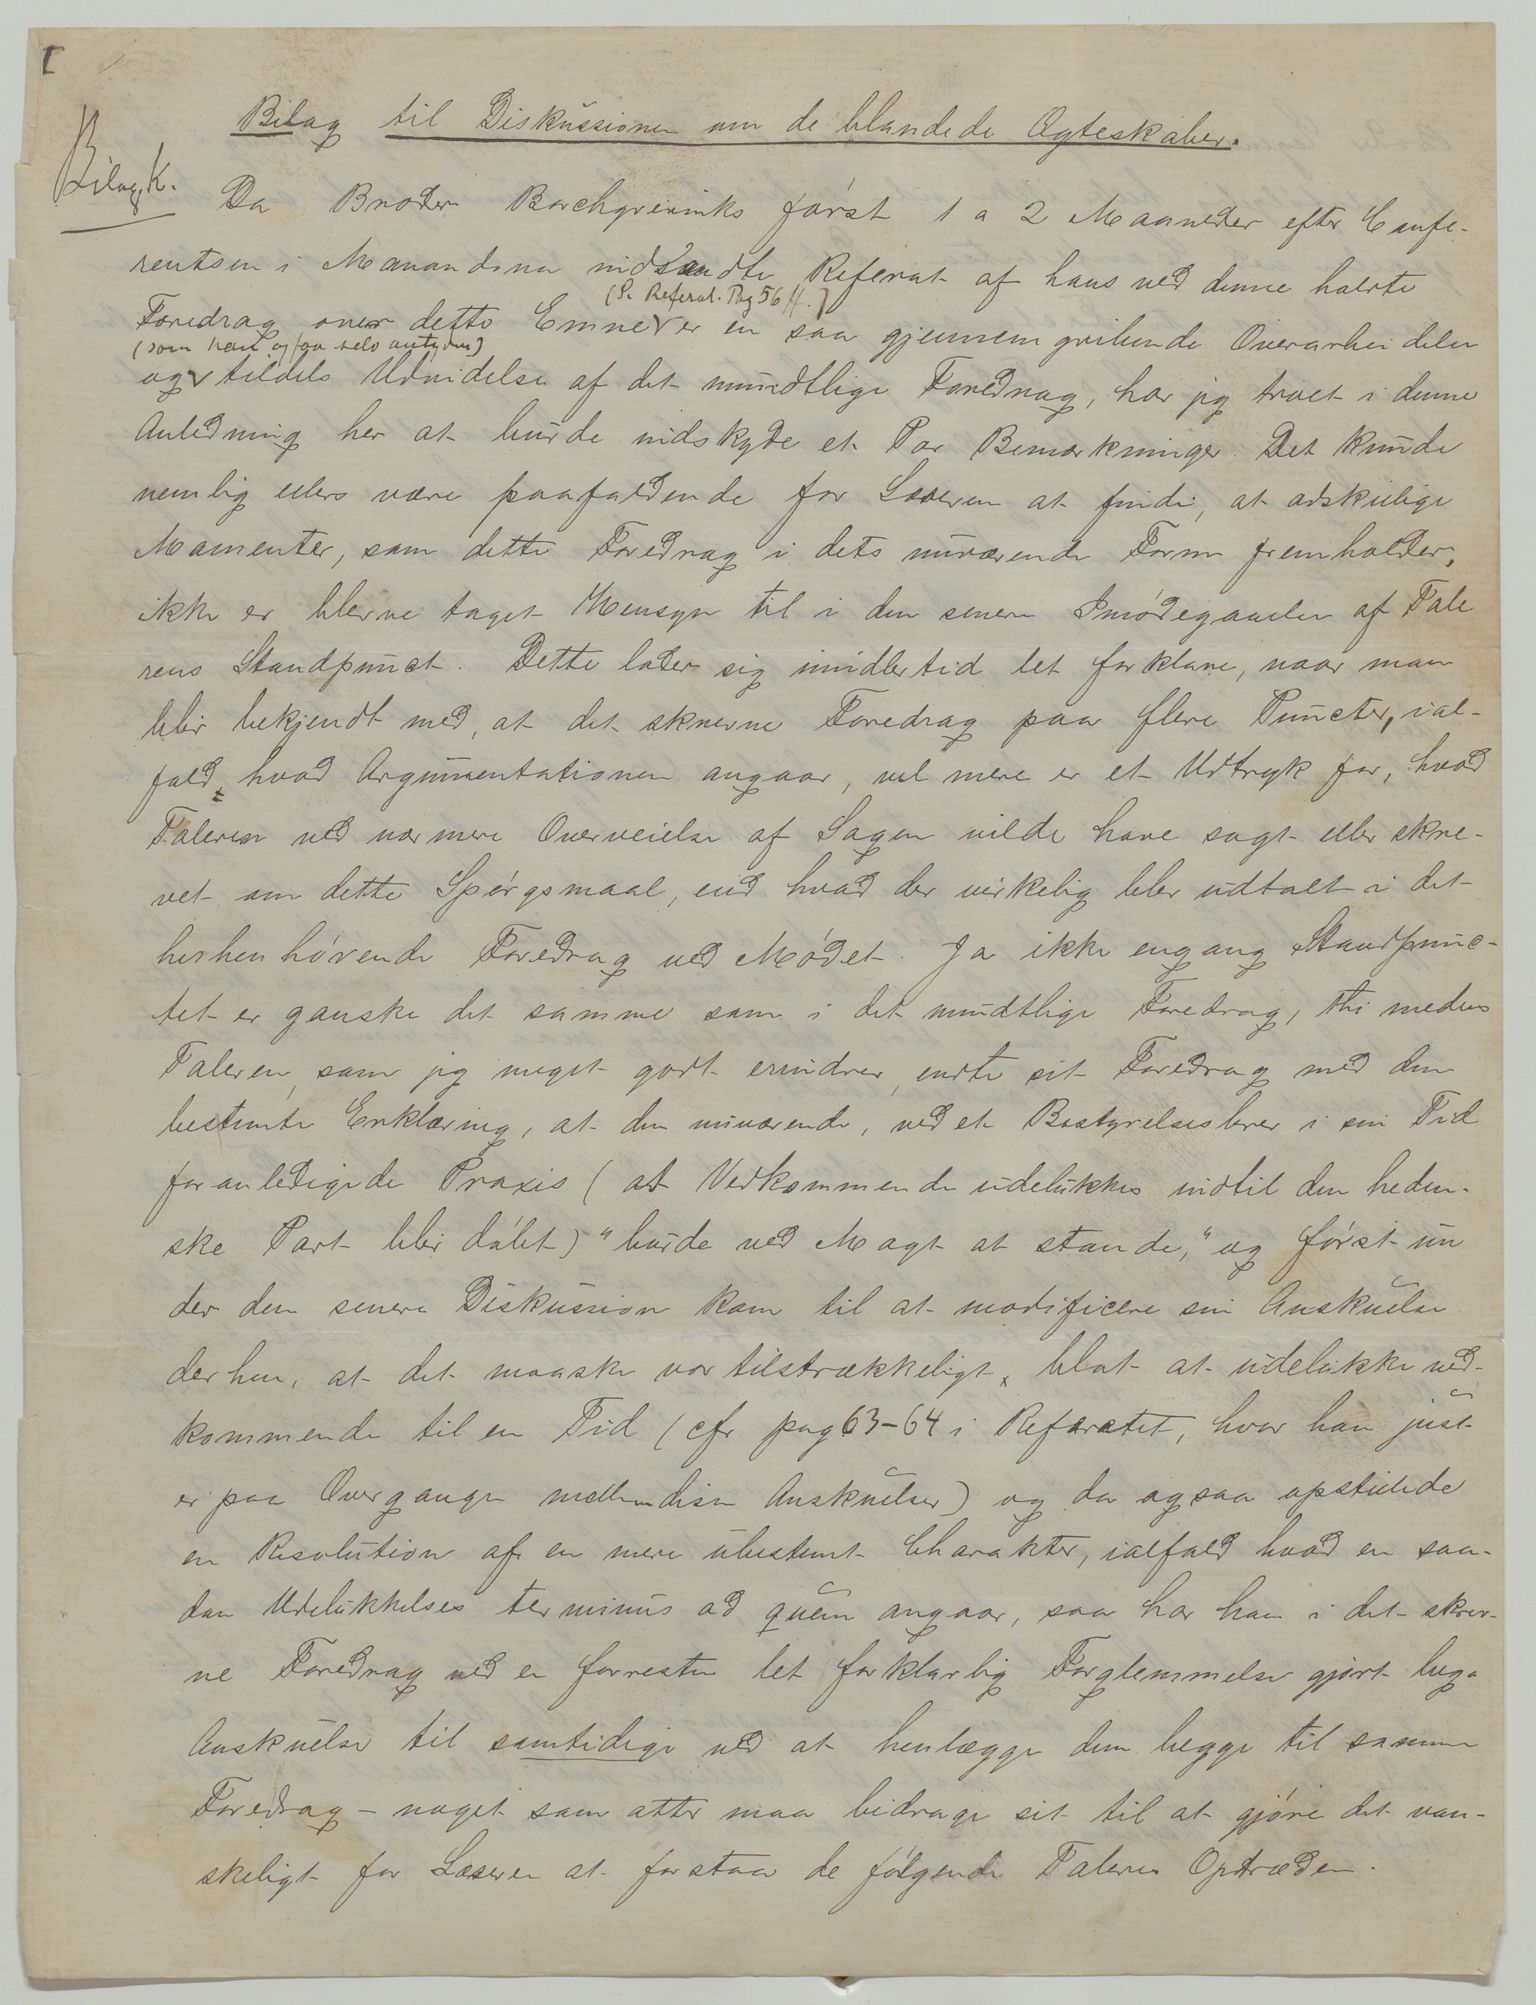 I
Bilag til Diskussionen om de blandede Ægteskaber.
Bilag K.
Da Broder Borchgrevinks først 1 a 2 Maaneder efter Confe-
rentsen i Manandona indsendte Referat af hans ved denne holdte
(S. Referat. Pag 56 ff.)
Foredrag over dette Emne er en saa gjennemgribende Overarbeidelse
(som han ogsaa selv antyder)
og tildels Udvidelse af det mundtlige Foredrag, har jeg troet i denne
Anledning her at burde indskyde et Par Bemærkninger. Det kunde
nemlig ellers være paafaldende for Læseren at finde, at adskillige
Momenter, som dette Foredrag i dets nuværende Form fremholder,
ikke er blevne taget Hensyn til i den senere Imødegaaelse af Tale
rens Standpunct. Dette lader sig imidlertid let forklare, naar man
blir bekjendt med, at det skrevne Foredrag paa flere Puncter, ial-
fald hvad Argumentationen angaar, vel mere er et Udtryk for, hvad
Taleren ved nærmere Overveielse af Sagen vilde have sagt eller skre-
vet om dette Spørgsmaal, end hvad der virkelig blev udtalt i det
herhenhørende Foredrag ved Mødet. Ja ikke engang Standpunc-
tet er ganske det samme som i det mundtlige Foredrag, thi medens
Taleren, som jeg meget godt erindrer, endte sit Foredrag med den
bestemte Erklæring, at den nuværende, ved et Bestyrelsesbrev i sin Tid
foranledigede Praxis (at Vedkommende udelukkes indtil den heden-
ske Part blir døbt) "burde ved Magt at stande," og først un
der den senere Diskussion kom til at modificere sin Anskuelse
derhen, at det maaske var tilstrækkeligt, blot at udelukke ved-
kommende til en Tid (cfr pag 63-64 i Referatet, hvor han just
er paa Overgangen mellem disse Anskuelser) og da ogsaa opstillede
en Resolution af en mere ubestemt Charakter, ialfald hvad en saa-
dan Udelukkelses terminus ad quem angaar, saa har han i det skrev-
ne Foredrag ved en forresten let forklarlig Forglemmelse gjort begge
Anskuelser til samtidige ved at henlægge dem begge til samme
Foredrag - noget som atter maa bidrage sit til at gjøre det van-
skeligt for Læseren at forstaa de følgende Taleres Optræden.